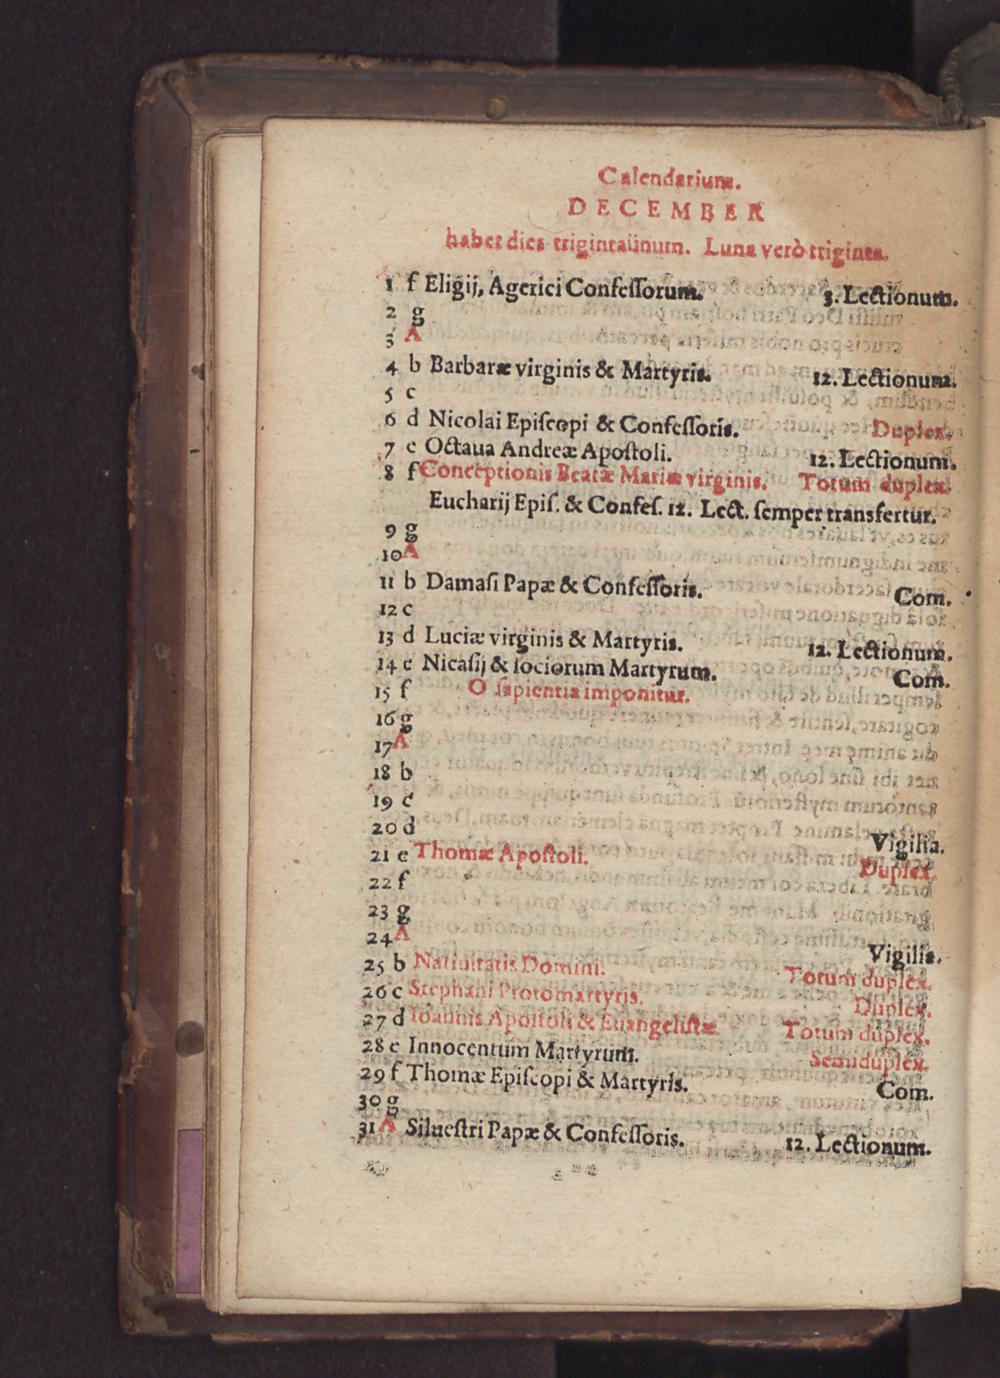 Calendarium.
DECEMBER
habet dies trigintaúnum. Luna verò triginta.
1 f Eligij, Agerici Confeſſorum. 3. Lectionum.
2 g
3 A
4 b Barbaræ virginis & Martyris. 12. Lectionum.
5 c
6 d Nicolai Epiſcopi & Confeſſoris. Duplex.
7 e Octaua Andreæ Apoſtoli. 12. Lectionum.
8 f Conceptionis Beatæ Mariæ virginis. Totum duplex.
Eucharij Epiſ. & Confeſ. 12. Lect. ſemper transfertur.
9 g
10 A
11 b Damaſi Papæ & Confeſſoris. Com.
12 c
13 d Luciæ virginis & Martyris. 12. Lectionum.
14 e Nicaſij & ſociorum Martyrum. Com.
15 f O ſapientia imponitur.
16 g
17 A
18 b
19 c
20 d Vigilia.
21 e Thomæ Apoſtoli. Duplex.
22 f
23 g
24 A Vigilia.
25 b Natiuitatis Domini. Totum duplex.
26 c Stephani Protomartyris. Duplex.
27 d Ioannis Apoſtoli & Euangeliſtæ Totum duplex.
28 e Innocentum Martyrum. Semiduplex.
29 f Thomæ Epiſcopi & Martyris. Com.
30 g
31 A Silueſtri Papæ & Confeſſoris. 12. Lectionum.